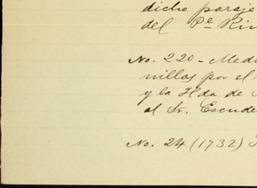 dicho paraje
del Pe Rin
No. 220 - Medi
nillas por el
y la Hda de
al Sr. Escude
No. 24 (1732)